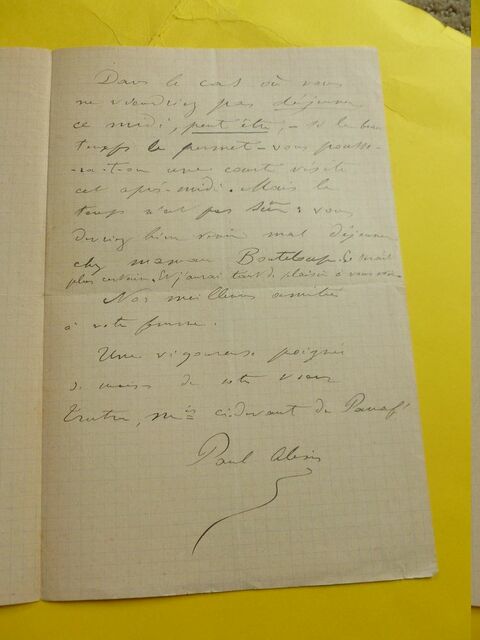 Dans le cas où vous
ne viendriez pas déjeuner
ce midi, peut être, – si le beau
temps le permet – vous pousse-
-ra-t-on une courte visite
cet après-midi. Mais le
temps n'est pas sûr : vous
devriez bien venir mal déjeuner
chez maman ce serait
plus certain, et j'aurai tant de plaisir à vous voir.
Nos meilleures amitiés
à votre femme.
Une vigoureuse poignée
de mains de votre vieux
ci-devant de
Paul Alexis